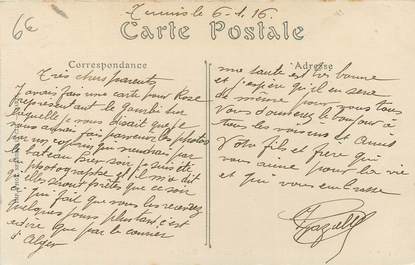 6e
le 6.1.16
Carte Postale
Correspondance
Adresse
Très chers parents
J'avais fait une carte pour Rose
représentant le Gambi sur
laquelle je vous disait que je
vous faire parvenir les photos
par un copain qui par
le bateau hier soir je suis été
photographe et il m'a dit
qu'elles seront prêtes que ce soir
qui fait que vous les recevrez
quelques jours plus tard c'est
à dire que par le courrier
d'Alger
ma santé est très bonne
et j'espère qu'il en sera
de même pour vous tous
Vous donnerez le bonjour à
tous les voisins et amis
Votre fils et frère qui
vous aime pour la vie
et qui vous embrasse